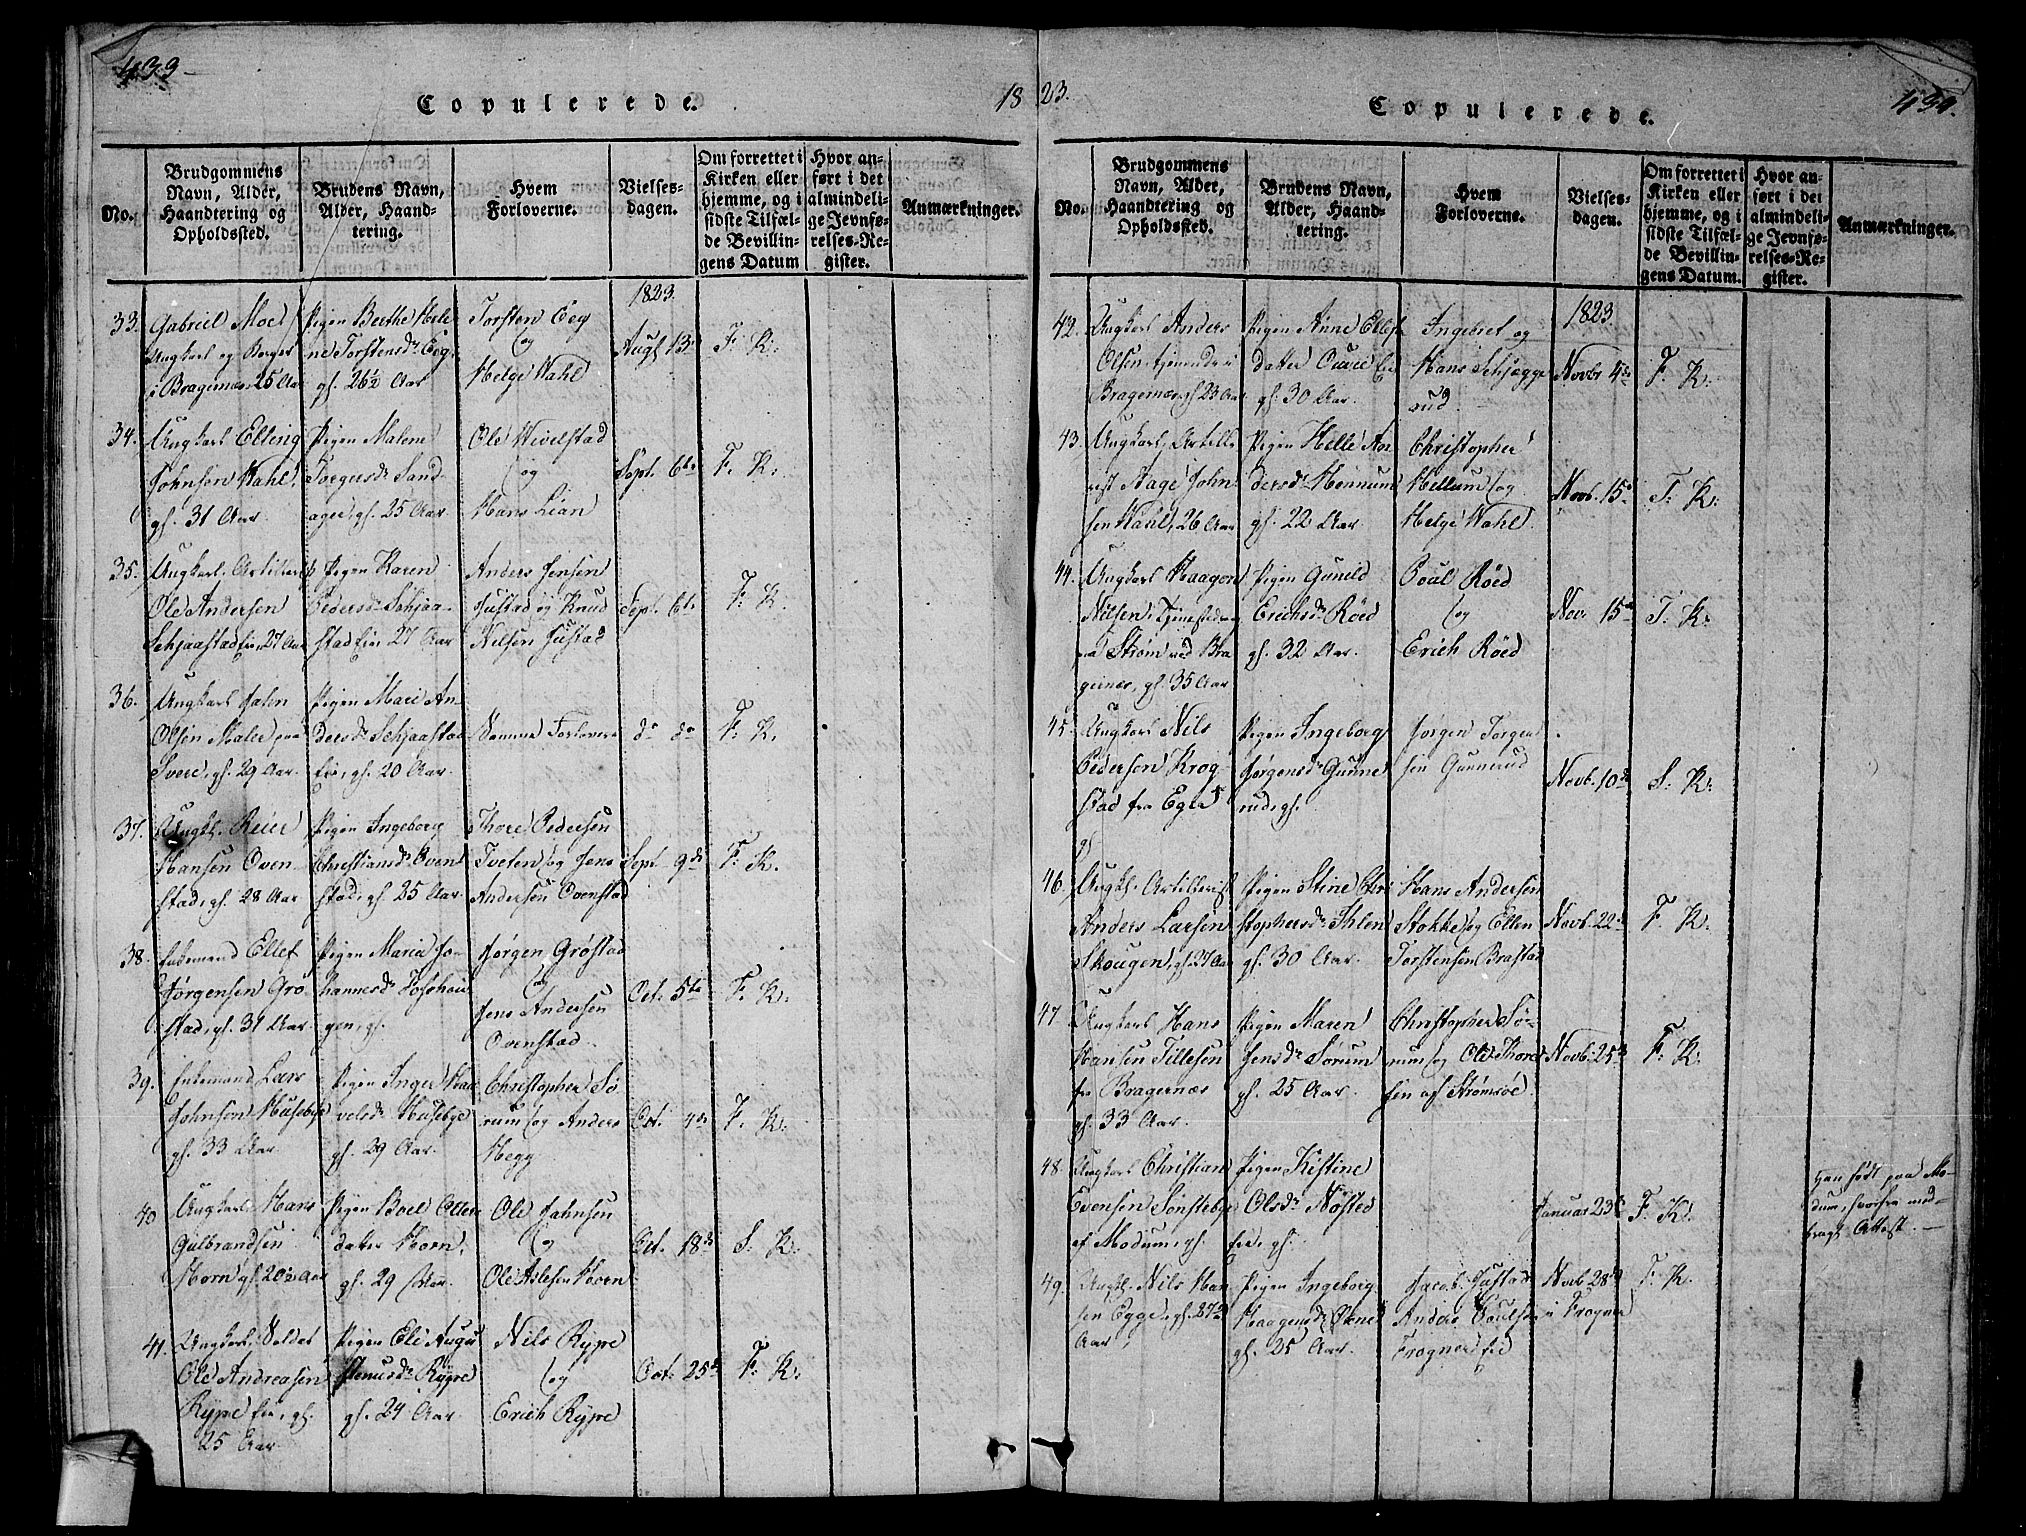 433
Copulerede.
18
No.
Brudgommens
Navn, Alder,
Haandtering og
Opholdssted.
Brudens Navn,
Alder, Haand-
tering.
Hvem
Forloverne.
Vielses-
dagen.
Om forrettet i
Kirken eller
hjemme, og i
sidste Tilfæl-
de Bevillin-
gens Datum
Hvor an-
ført i det
almindeli-
ge Jevnfø-
relses-Re-
gister.
Anmærkninger.
1823.
33.
Gabriel Moe
Ungkarl og Borger
i Bragernæs 25 Aar
Pigen Berthe Hele
ne Torstensdr Eeg
gl. 26½ Aar
Torsten Eeg
og
Helge Wahl
Augt 13
F. K.
34.
Ungkarl Elling
Johnsen Wahl,
gl. 31 Aar
Pigen Malene
Torgersdr Sand-
ager, gl. 25 Aar
Ole Wivelstad
og
Hans Lian
Sept. 6te
F. K.
35.
Ungkarl. Artillerist
Ole Andersen
Schjaastad eie, 27 Aar
Pigen Karen
Pedersdr Schjaa-
stad eie, 27 Aar
Anders Jensen
Justad og Knud
Nilsen Justad
Sept. 6te
F. K.
36.
Ungkarl
Olsen Maler paa
Svere, gl. 29 Aar.
Pigen Mari An-
dersdr Schjaastad
eie, gl. 20 Aar.
Samme Forlovere
do do
F. K.
37.
Ungk. Reier
Hansen Oven-
stad, gl. 28 Aar
Pigen Ingeborg
Christiansdr Oven
stad, gl. 25 Aar.
Thore Pedersen
Tveten og Jens
Andersen Ovenstad
Sept. 9de
F. K.
38.
Enkemand Ellef
Jørgensen Grø
stad, gl. 31 Aar.
Pigen Maria Jo-
hannesdr Toshou
gen, gl.
Jørgen Grøstad
og
Jens Andersen
Ovenstad.
Oct. 5te
F. K.
39.
Enkemand Lars
Johnsen Huseby
gl. 33 Aar
Pigen Inger Paa
velsdr Husebye
gl. 29 Aar.
Christopher Sø
rum og Anders
Hegg
Oct. 4de
F. K.
40
Ungkarl Hans
Gulbrandsen
Horn gl. 20½ Aar
Pigen Boel Ellens
datter Horn,
gl. 29 Aar.
Ole Johnsen
og
Ole Aslesen Horn
Oct. 18de
S. K.
41.
Ungkarl, Soldat
Ole Andreasen
Rype eie, gl.
25 Aar
Pigen Eli Augu
stinusdr Rype
gl. 24 Aar.
Nils Rype
og
Erich Rype
Oct. 25de
F. K.
23.
Copulerede.
434.
No.
Brudgommens
Navn, Alder,
Haandtering og
Opholdssted.
Brudens Navn,
Alder, Haand-
tering.
Hvem
Forloverne.
Vielses-
dagen.
Om forrettet i
Kirken eller
hjemme, og i
sidste Tilfæl-
de Bevillin-
gens Datum.
Hvor an-
ført i det
almindeli-
ge Jevnfø-
relses-Re-
gister.
Anmærkninger.
1823.
42.
Ungkarl Anders
Olsen tjenende i
Bragernæs gl. 23 Aar
Pigen Anne Ellefs
datter eie
gl. 30 Aar.
Ingebret og
Hans Schjægge
rud.
Novbr 4de
F. K.
43.
Ungkarl, Artille
rist Aage John-
sen Wahl, 26 Aar
Pigen Helle An
dersdr Hønnum
gl. 22 Aar.
Christopher
Hellum og
Helge Wahl.
Novb. 15de
F. K.
44.
Ungkarl Haagen
Nilsen, Tjeneste
paa Strøm ved Bra
gernæs, gl. 35 Aar
Pigen Guneld
Erichsdr Røed
gl. 32 Aar.
Poul Røed
og
Erich Røed
Nov. 15de
F. K.
45.
Ungkarl Nils
Pedersen Krog-
stad fra Egers
gl.
Pigen Ingeborg
Jørgensdr Gunne
rud, gl.
Jørgen Torger
sen Gunnerud
Novb. 10de
S. K.
46.
Ungk. Artillerist
Anders Larsen
Skougen, gl. 27 Aar
Pigen Stine Chri
stophersdr Ihlen
gl. 30 Aar.
Hans Andersen
Stokke og Ellen
Torstensen Brastad
Novb. 22de
F. K.
47
Ungkarl Hans
Hansen Tillesen
fra Bragernæs
gl. 33 Aar.
Pigen Maren
Jensdr Sørum
gl. 25 Aar.
Christopher Sø-
rum og Ole Thore
sen af Strømsøe.
Novb. 25de
F. K.
48.
Ungkarl Christian
Evensen Sønsteby
af Modum, gl.
Pigen Kistine
Olsdr Nøsted
eie, gl.
Januar 23de
F. K.
Han født paa Mo-
dum, hvorfra med-
bragt Attest. —
49.
Ungk. Nils Han
sen Egge, gl. 27½
Aar
Pigen Ingeborg
Haagensdr
gl. 25 Aar.
Jacob Justad
Anders Poulsen
Frogner eie
Novb 28de
i Frogner
F. K.